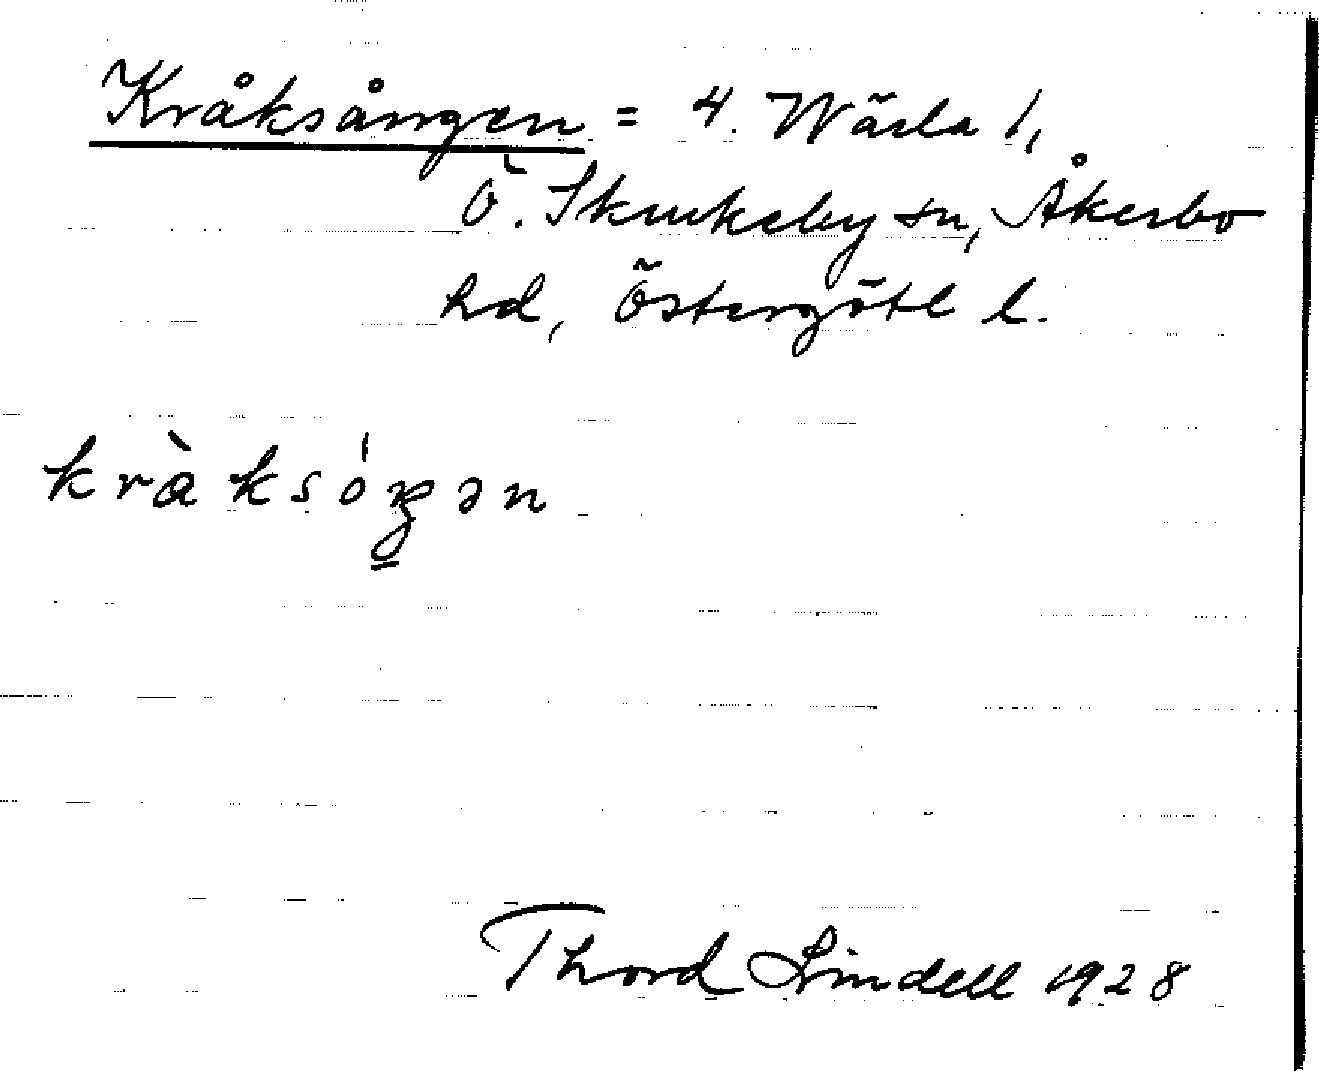 Kråksången = 4. Wärla 1,
Ö. Skrukeby sn, Åkerbo
hd, Östergötl l.
kràksóŋən
Thord Lindell 1928